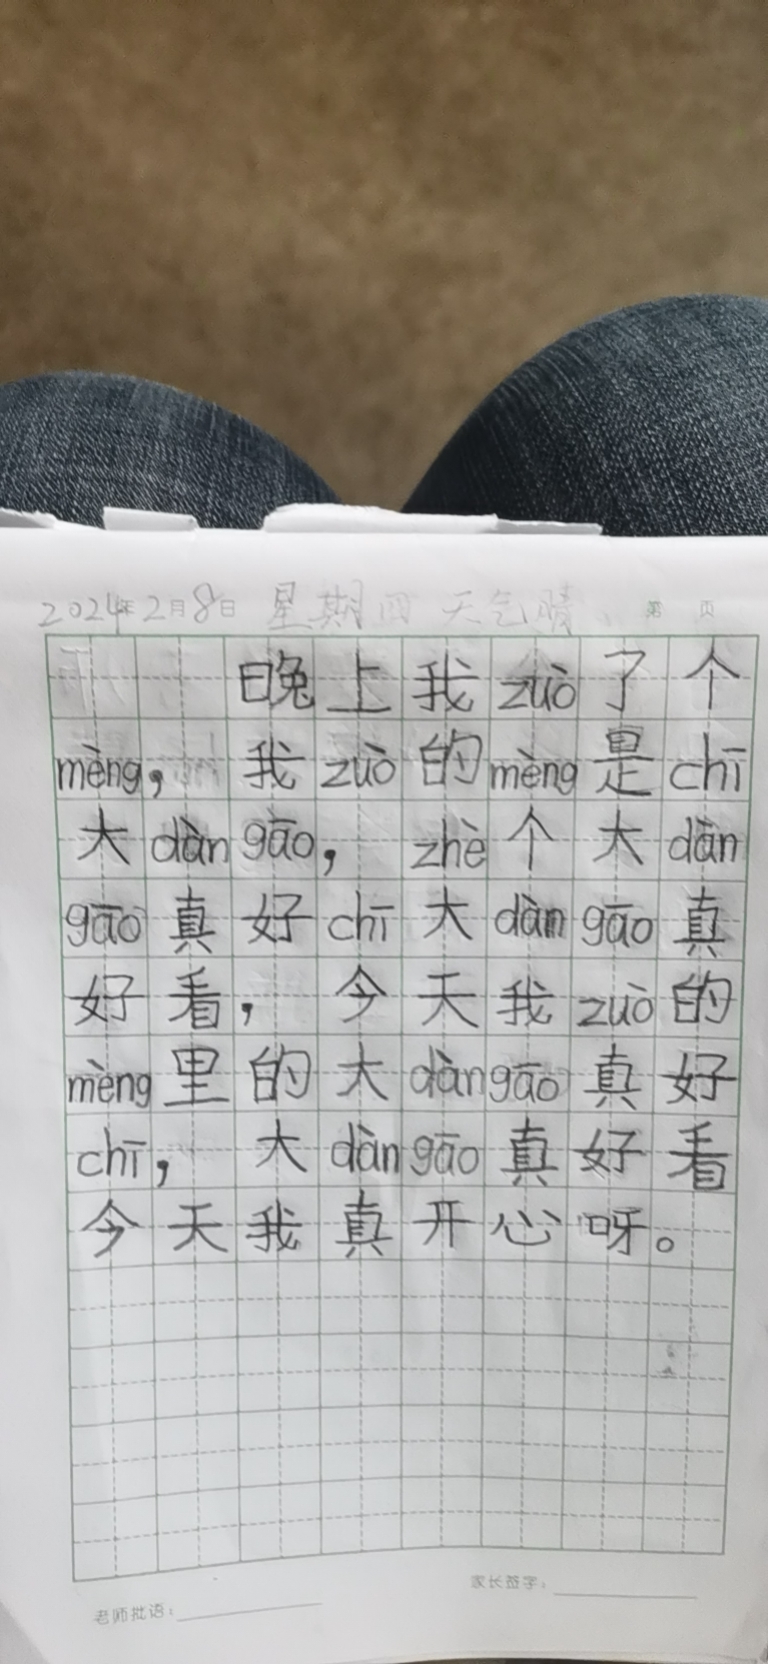 2024年2月8日 星期四 天气晴 第 页
晚上我zuò了个
mèng，我zuò的mèng是chī
大dàngāo，zhè个大dàn
gāo真好chī大dàngāo真
好看，今天我zuò的
mèng里的大dàngāo真好
chī，大dàngāo真好看
今天我真开心呀。
家长签字：
老师批语：